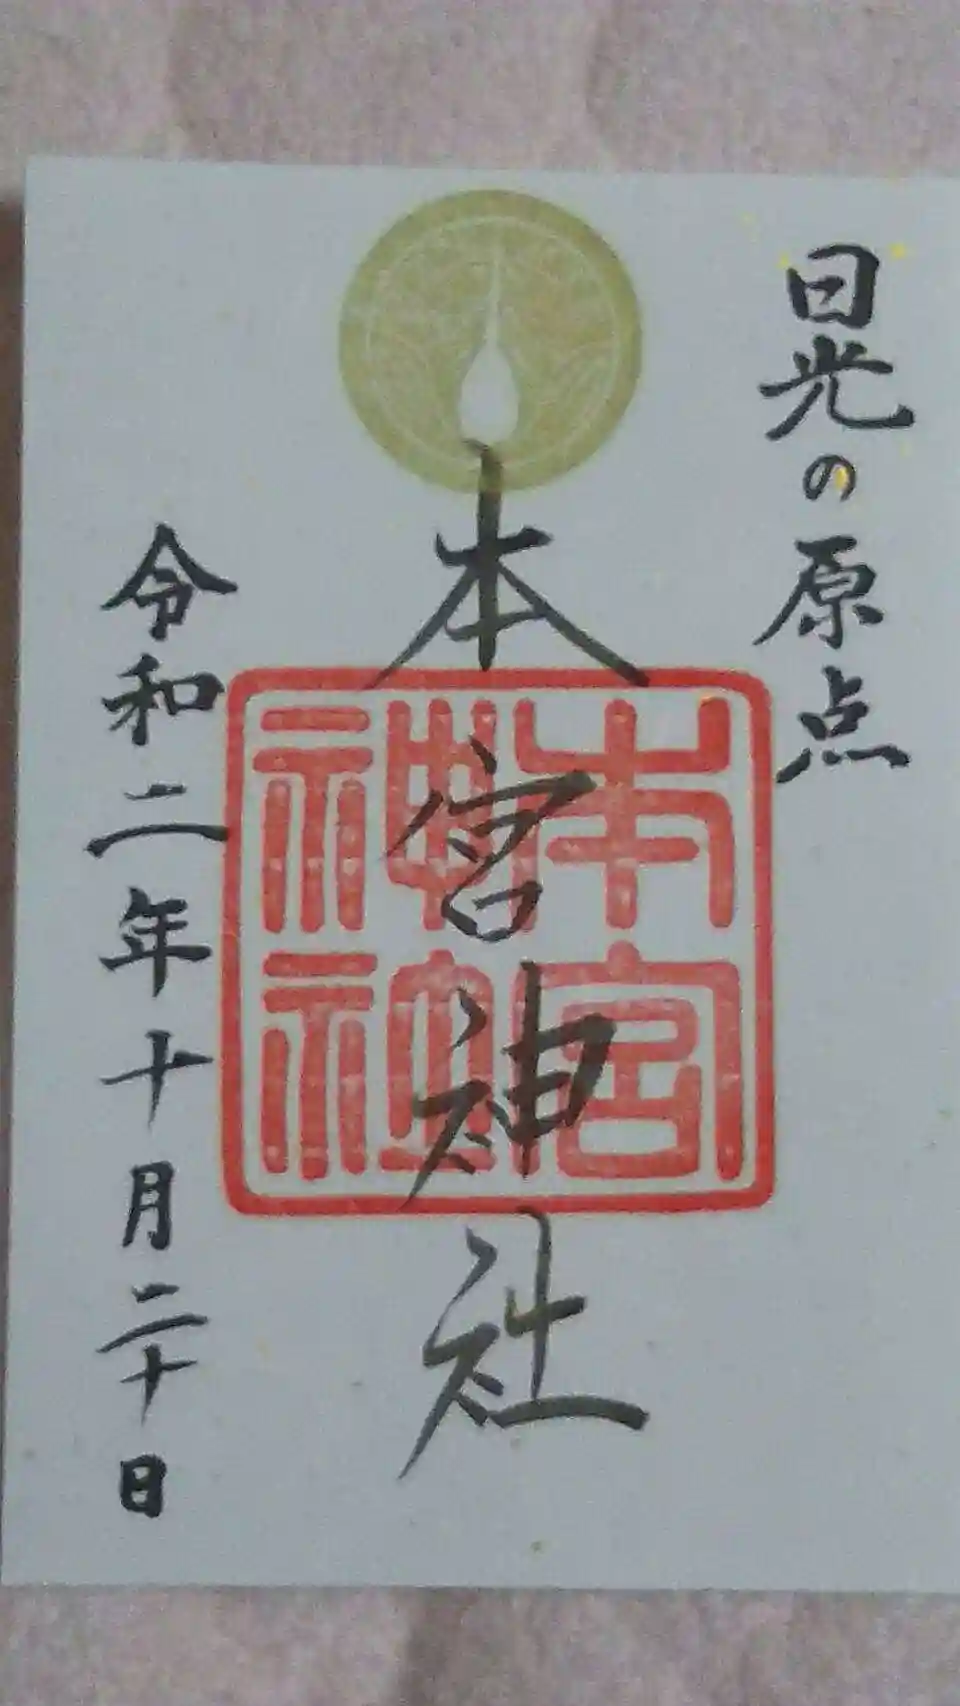 日光の原点
本宮神社
本宮
神社
令和二年十月二十日